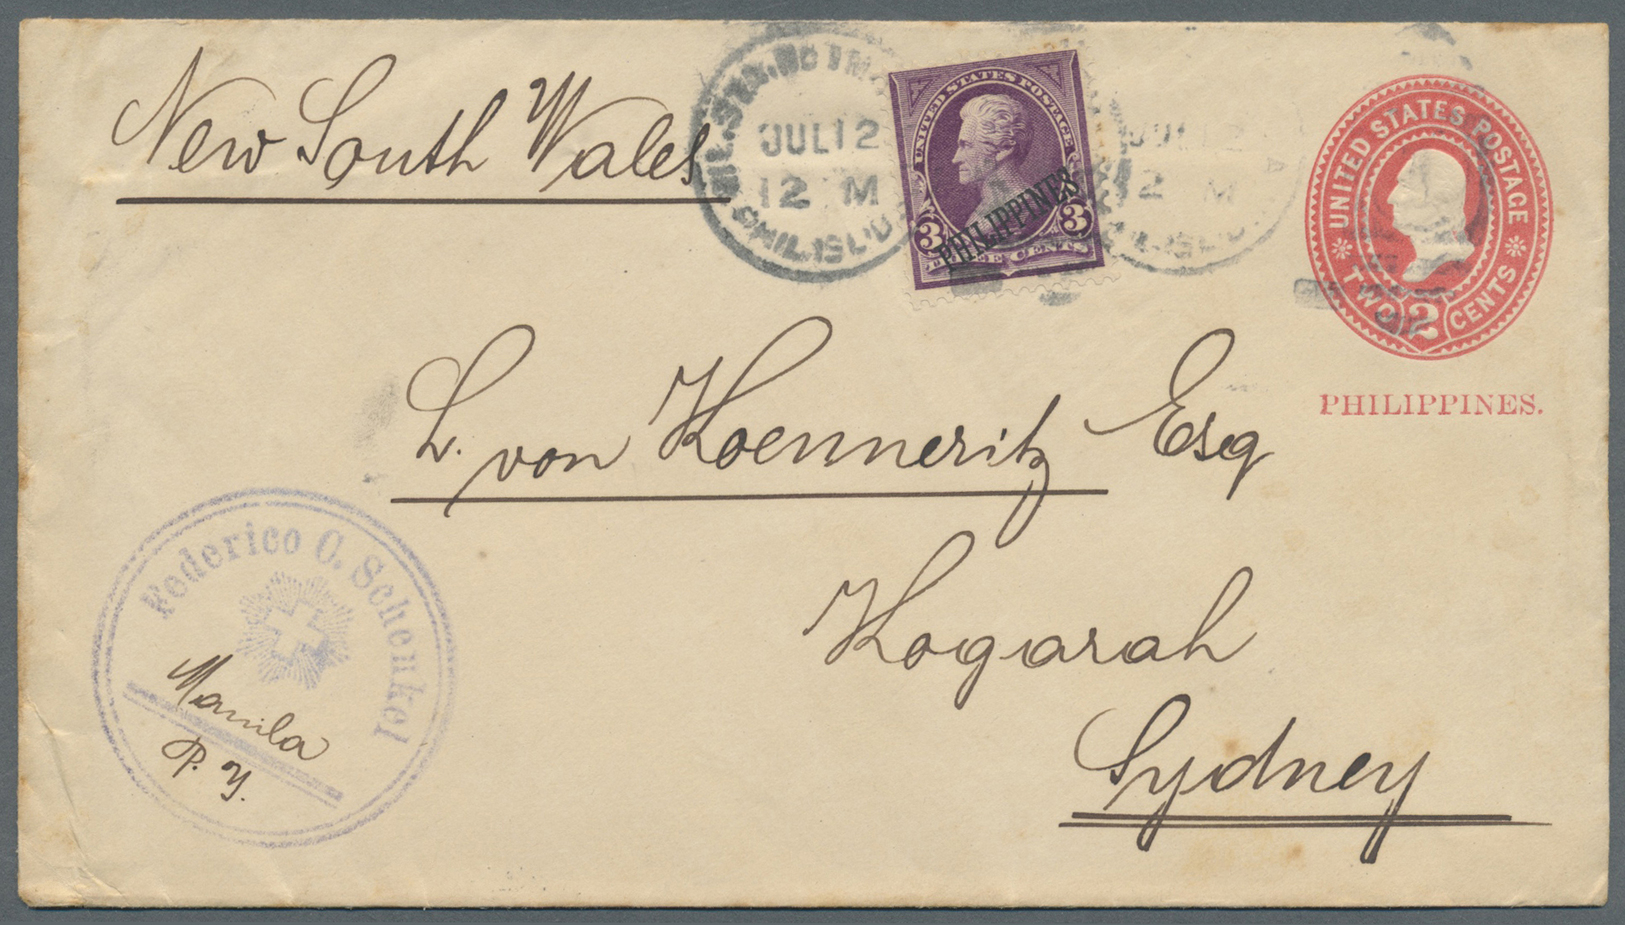 New South Wales
MIL. STA. NO 1 M
JUL 12
12 M
PHIL. ISL'DS
UNITED STATES POSTAGE
3 3
THREE CENTS
PHILIPPINES
JUL 12
12 M
UNITED STATES POSTAGE
TWO 2 CENTS
PHILIPPINES.
L. von Koenneritz Esq
Kogarah
Sydney
Federico C. Schenkel
Manila
P. I.